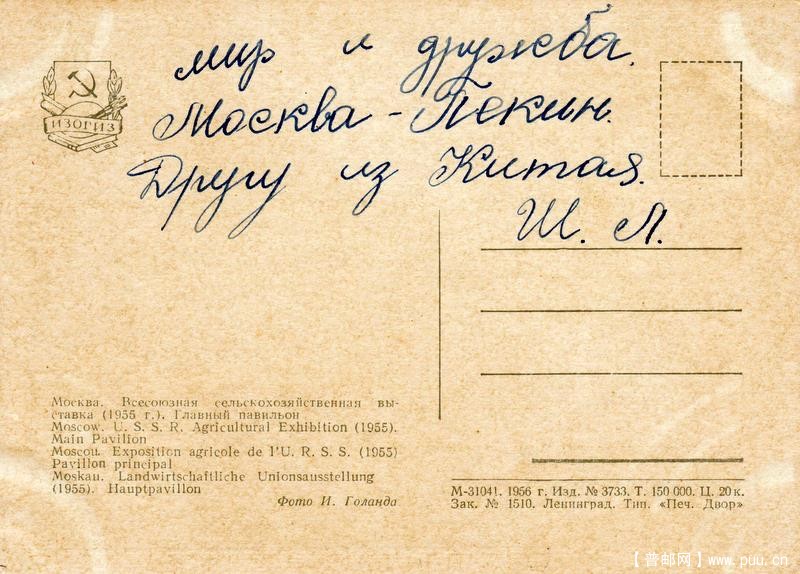 мир и дружба.
Москва - Пекин.
Другу из Китая.
Ш. Л.
ИЗОГИЗ
Москва. Всесоюзная сельскохозяйственная вы-
ставка (1955 г.). Главный павильон
Moscow. U. S. S. R. Agricultural Exhibition (1955).
Main Pavilion
Moscou. Exposition agricole de l'U. R. S. S. (1955)
Pavillon principal
Moskau. Landwirtschaftliche Unionsausstellung
(1955). Hauptpavillon
Фото И. Голанда
М-31041. 1956 г. Изд. № 3733. Т. 150 000. Ц. 20 к.
Зак. № 1510. Ленинград. Тип. «Печ. Двор»
【普邮网】www.puu.cn